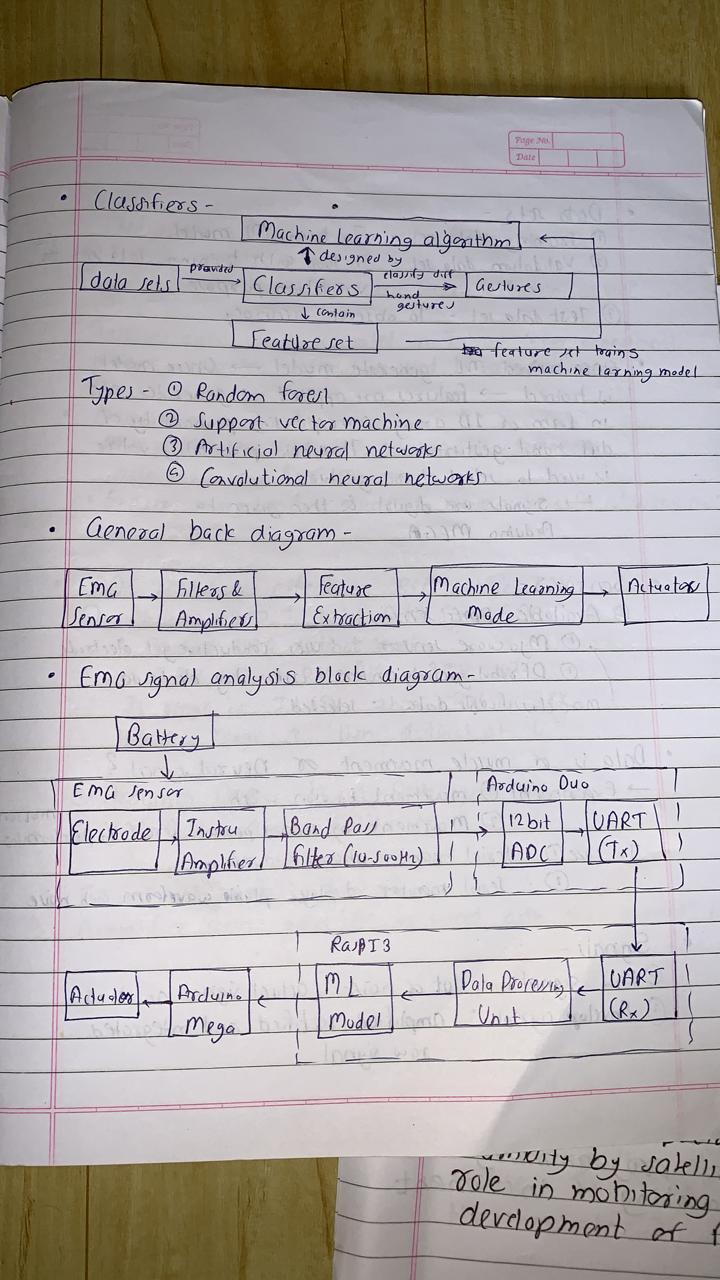 Page No.
Date
• Classifiers -
Machine Learning algorithm
↑ designed by
data sets
provided
Classifiers
classify diff
hand
gestures
Gestures
↓ contain
Feature set
feature set trains
machine larning model
Types - ① Random forest
② Support vector machine
③ Artificial neural networks
④ Convolutional neural networks
• General back diagram -
EMG
Sensor
Filters &
Amplifiers
Feature
Extraction
Machine Learning
Mode
Actuator
• EMG signal analysis block diagram -
Battery
EMG sensor
Arduino Duo
Electrode
Instru
Amplifier
Band Pass
filter (10-500Hz)
12bit
ADC
UART
(Tx)
RasPI3
Actuator
Arduino
Mega
ML
Model
Data Processing
Unit
UART
(Rx)
by satelli
role in monitoring
development of f